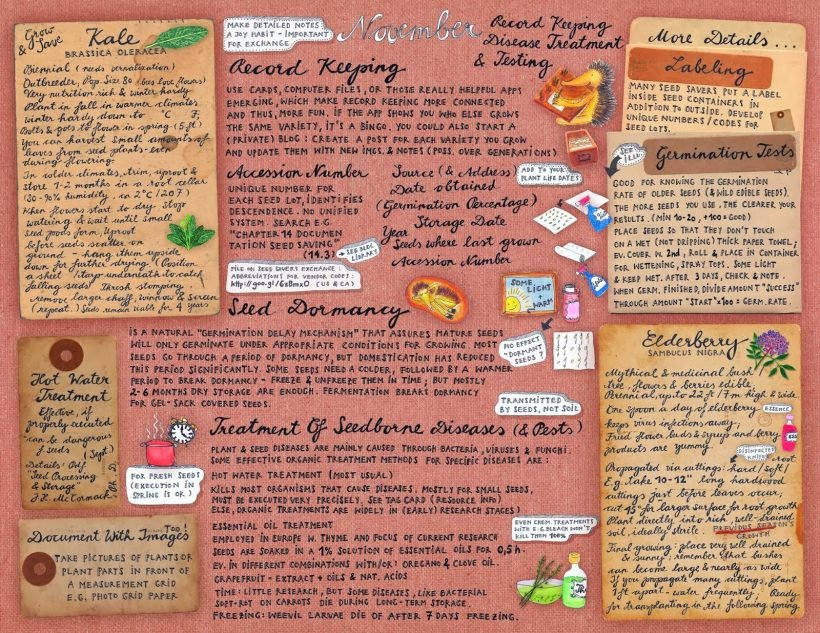 Grow & Save
Kale
BRASSICA OLERACEA
Biennial (needs vernalization)
Outbreeder, Pop. Size 80 (bees love flowers)
Very nutrition rich & winter hardy
Plant in fall in warmer climates
winter hardy down to °C F;
Bolts & goes to flower in spring (5 ft)
You can harvest small amounts of
leaves from seed plants - even
during flowering.
In colder climates, trim, uproot &
store 1-2 months in a root cellar
(80-90% humidity, on 2°C/
When flowers start to dry: Stop
watering & wait until small
seed pods form. Uproot
before seeds scatter on
ground - hang them upside
down for further drying. (Position
a sheet/tarp underneath to catch
falling seeds) Thresh stomping
remove large chaff, winnow & screen
(repeat.) Seeds remain viable for 4 years
MAKE DETAILED NOTES
A JOY HABIT - IMPORTANT
FOR EXCHANGE
November
Record Keeping
Disease Treatment
& Testing
Record Keeping
USE CARDS, COMPUTER FILES, OR THOSE REALLY HELPFUL APPS
EMERGING, WHICH MAKE RECORD KEEPING MORE CONNECTED
AND THUS, MORE FUN. IF THE APP SHOWS YOU WHO ELSE GROWS
THE SAME VARIETY, IT'S A BINGO. YOU COULD ALSO START A
(PRIVATE) BLOG: CREATE A POST FOR EACH VARIETY YOU GROW
AND UPDATE THEM WITH NEW IMGS. & NOTES (POSS. OVER GENERATIONS)
Accession Number
UNIQUE NUMBER FOR
EACH SEED LOT, IDENTIFIES
DESCENDENCE. NO UNIFIED
SYSTEM. SEARCH E.G.
"CHAPTER 14 DOCUMEN
TATION SEED SAVING"
(14.3)
→ SEE BLOG
LIBRARY
FILE ON SEED SAVERS EXCHANGE:
ABBREVIATIONS FOR VENDOR CODES:
(US & CA)
Source (& Address)
Date obtained
(Germination Percentage)
Storage Date
Year
Seeds where last grown
Accession Number
ADD TO YOUR
PLANT LIFE DATES
Seed Dormancy
IS A NATURAL "GERMINATION DELAY MECHANISM" THAT ASSURES MATURE SEEDS
WILL ONLY GERMINATE UNDER APPROPRIATE CONDITIONS FOR GROWING. MOST
SEEDS GO THROUGH A PERIOD OF DORMANCY, BUT DOMESTICATION HAS REDUCED
THIS PERIOD SIGNIFICANTLY. SOME SEEDS NEED A COLDER, FOLLOWED BY A WARMER
PERIOD TO BREAK DORMANCY - FREEZE & UNFREEZE THEM IN TIME; BUT MOSTLY
2-6 MONTHS DRY STORAGE ARE ENOUGH. FERMENTATION BREAKS DORMANCY
FOR GEL-SACK COVERED SEEDS.
SOME
LIGHT
+
WARM
NO EFFECT
- DORMANT
SEEDS?
TRANSMITTED
BY SEEDS, NOT SOIL
Treatment Of Seedborne Diseases (& Pests)
PLANT & SEED DISEASES ARE MAINLY CAUSED THROUGH BACTERIA, VIRUSES & FUNGHI.
SOME EFFECTIVE ORGANIC TREATMENT METHODS FOR SPECIFIC DISEASES ARE:
HOT WATER TREATMENT (MOST USUAL)
KILLS MOST ORGANISMS THAT CAUSE DISEASES. MOSTLY FOR SMALL SEEDS,
MUST BE EXECUTED VERY PRECISELY. SEE TAG CARD (RESOURCE INFO)
ELSE, ORGANIC TREATMENTS ARE WIDELY IN (EARLY) RESEARCH STAGES)
ESSENTIAL OIL TREATMENT
EMPLOYED IN EUROPE W. THYME AND FOCUS OF CURRENT RESEARCH
SEEDS ARE SOAKED IN A 1% SOLUTION OF ESSENTIAL OILS FOR 0,5 h.
EV. IN DIFFERENT COMBINATIONS WITH/OR: OREGANO & CLOVE OIL.
GRAPEFRUIT-EXTRACT + OILS & NAT. ACIDS
TIME: LITTLE RESEARCH, BUT SOME DISEASES, LIKE BACTERIAL
SOFT-ROT ON CARROTS DIE DURING LONG-TERM STORAGE.
FREEZING: WEEVIL LARVAE DIE OF AFTER 7 DAYS FREEZING.
EVEN CHEM. TREATMENTS
WITH E.G. BLEACH WON'T
KILL THEM 100%
Hot Water
Treatment
Effective, if
properly executed
- can be dangerous
f. seeds
(Sept)
Details:
"Seed Processing
& Storage"
J.H. McCormack
FOR FRESH SEEDS
(EXECUTION IN
SPRING IS OK)
TOO!
Document With Images
TAKE PICTURES OF PLANTS OR
PLANT PARTS IN FRONT OF
A MEASUREMENT GRID
E.G. PHOTO GRID PAPER
More Details...
Labeling
MANY SEED SAVERS PUT A LABEL
INSIDE SEED CONTAINERS IN
ADDITION TO OUTSIDE. DEVELOP
UNIQUE NUMBERS/CODES FOR
SEED LOTS.
SEE
ILLU
Germination Tests
GOOD FOR KNOWING THE GERMINATION
RATE OF OLDER SEEDS (& WILD EDIBLE SEEDS).
THE MORE SEEDS YOU USE, THE CLEARER YOUR
RESULTS. (MIN 10-20, +100 = GOOD)
PLACE SEEDS SO THAT THEY DON'T TOUCH
ON A WET (NOT DRIPPING) THICK PAPER TOWEL;
EV. COVER W. 2nd, ROLL & PLACE IN CONTAINER
FOR WETTENING, SPRAY TOPS, SOME LIGHT
& KEEP WET. AFTER 3 DAYS, CHECK & NOTE.
WHEN GERM. FINISHED, DIVIDE AMOUNT "SUCCESS"
THROUGH AMOUNT "START" x 100 = GERM. RATE.
Elderberry
SAMBUCUS NIGRA
Mythical & medicinal bush
tree, flowers & berries edible.
Perennial, up to 22 ft / 7m high & wide.
One spoon a day of elderberry
ESSENCE
keeps virus infections away;
Fried flower buds & syrup and berry
products are yummy.
DISINFECTED
KNIFE
Propagated via cuttings: hard/soft/root
E.g. take 10-12" long hardwood
cuttings just before leaves occur,
cut 45° for larger surface for root growth
Plant directly into rich, well-drained
soil, ideally sterile.
PREVIOUS SEASON'S
GROWTH
Final growing: place very well drained
& sunny; remember that bushes
can become large & nearly as wide
If you propagate many cuttings, plant
1 ft apart - water frequently. Ready
for transplanting in the following spring